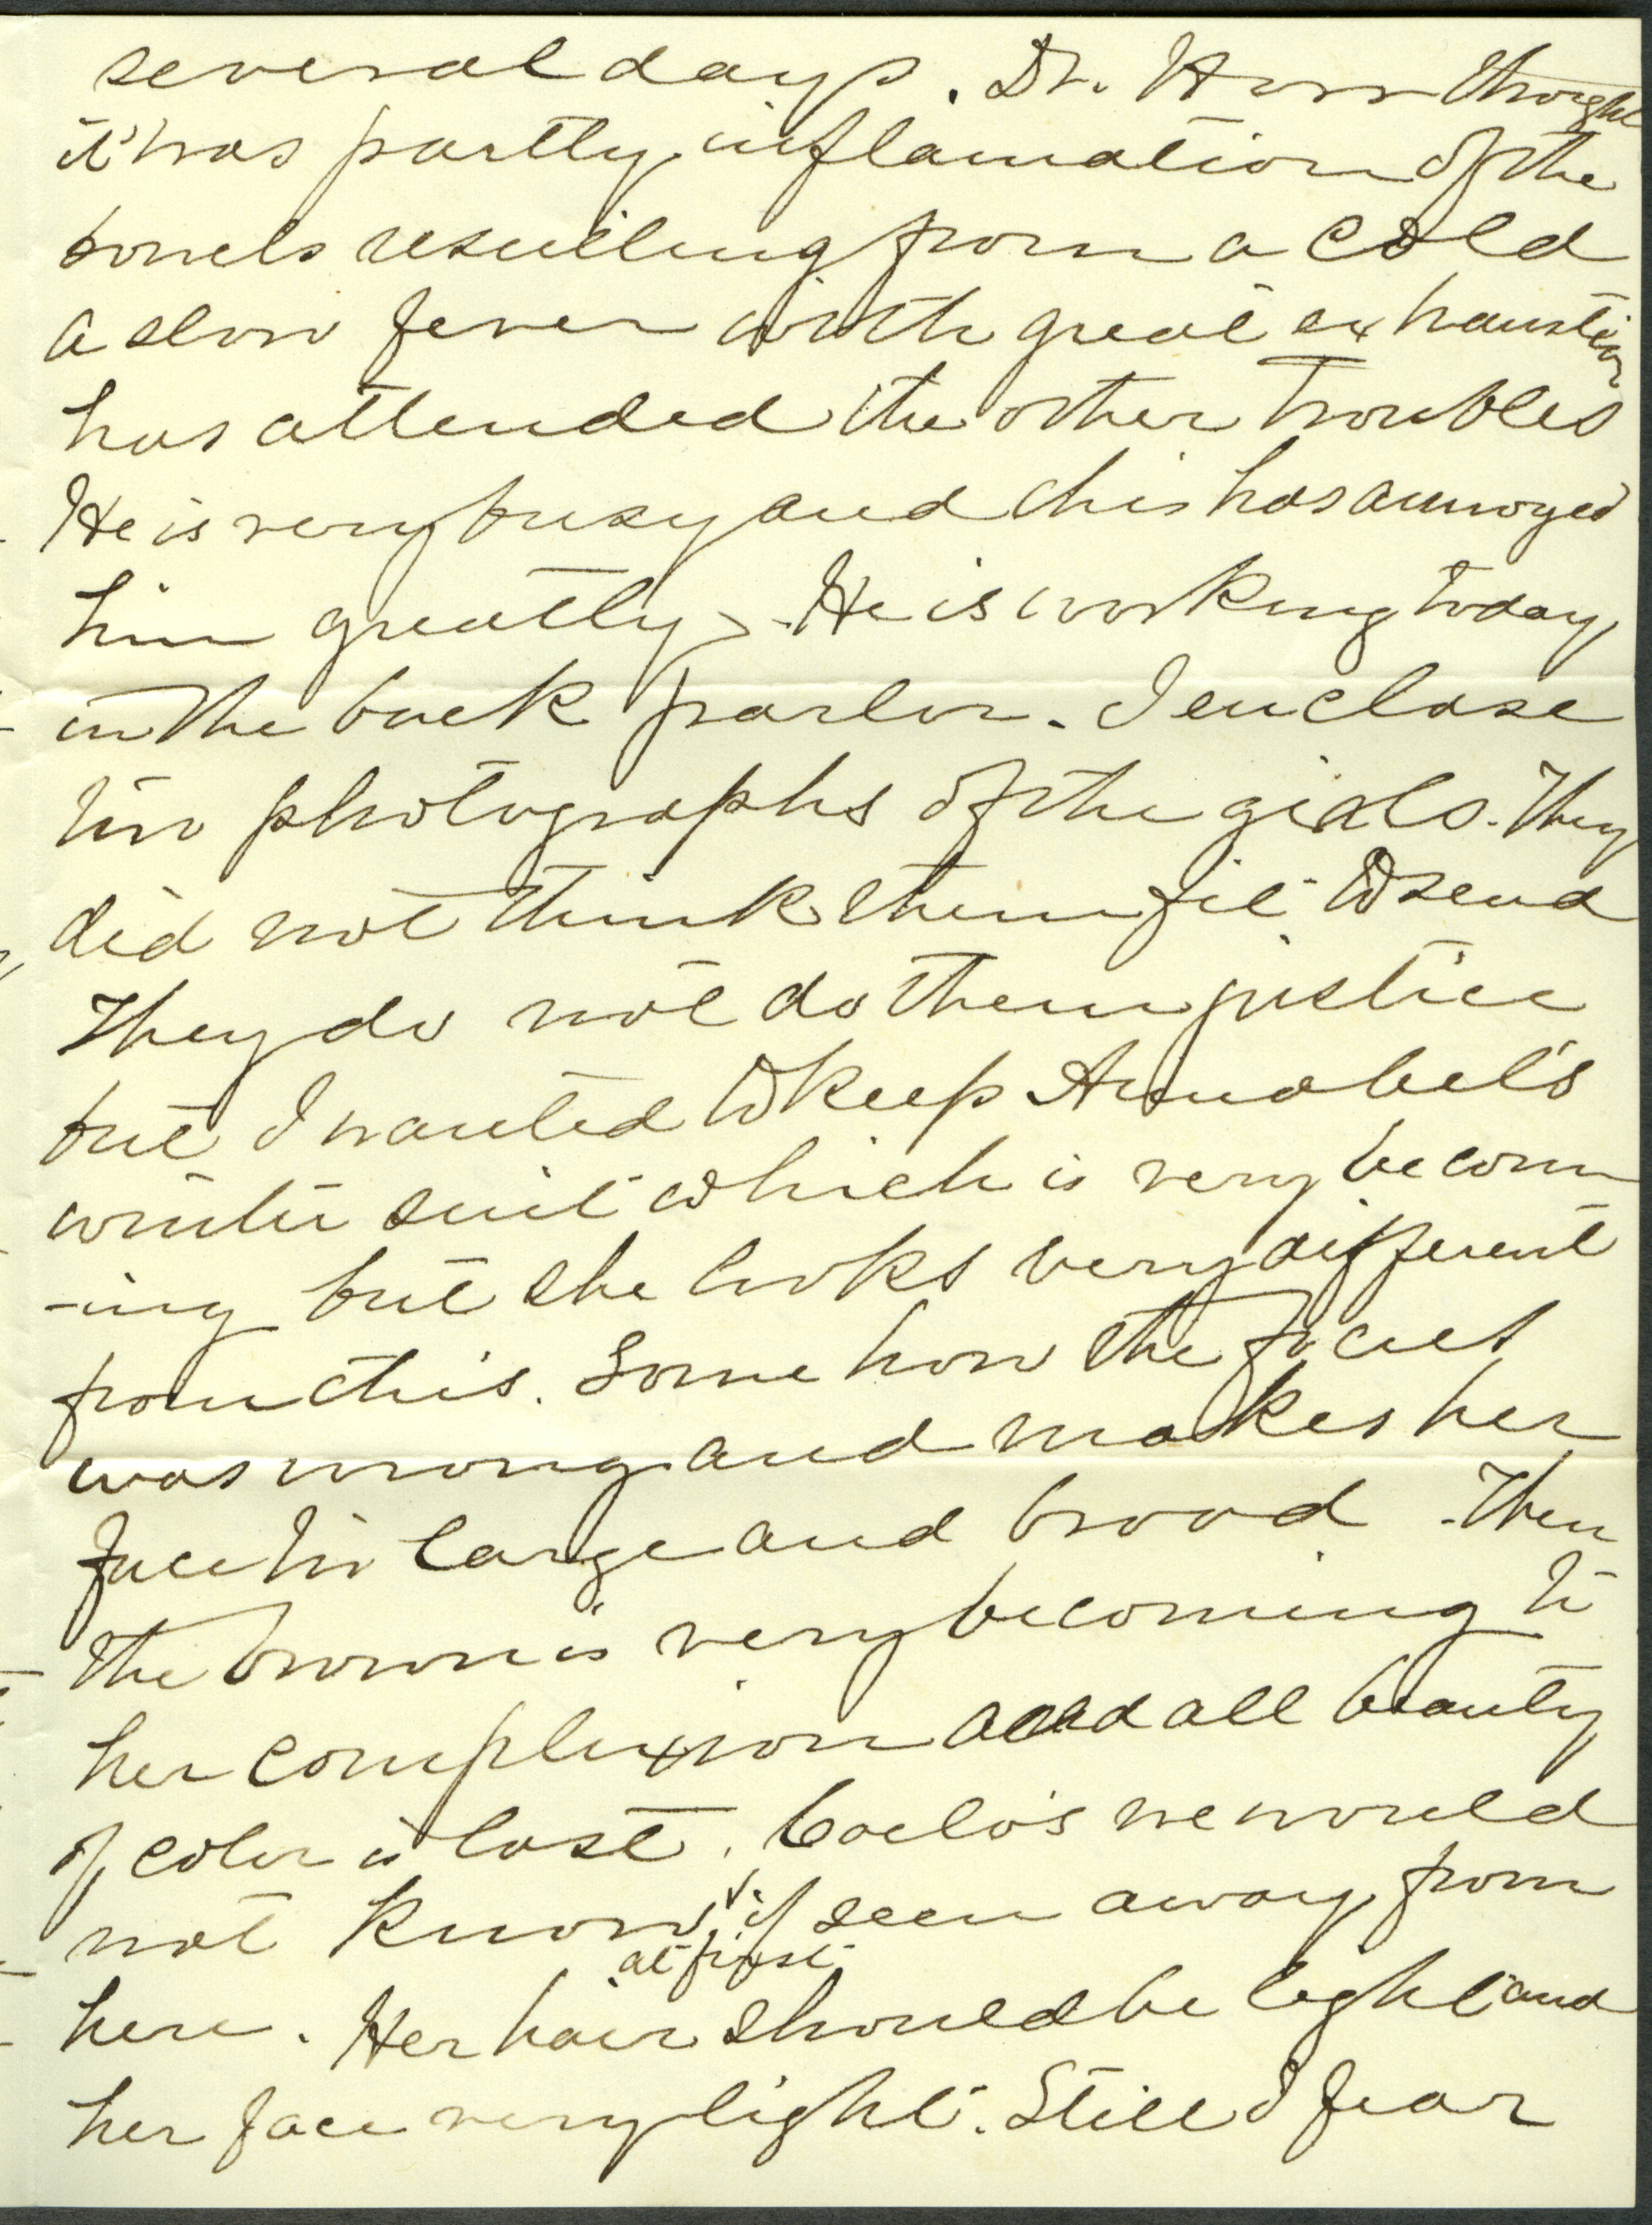 several days. Dr. Horr thought
it was partly inflamation of the
bowels resulting from a cold
a slow fever with great exhaustion
has attended the other troubles
He is very busy and this has annoyed
him greatly. He is working today
in the back parlor. I enclose
two photographs of the girls. They
did not think them fit to send
They do not do them justice
but I wanted to keep Annabel's
winter suit which is very becom
-ing but she looks very different
from this. Some how the focus
was wrong and makes her
face too large and broad. Then
the brown is very becoming to
her complexion and all beauty
of color is lost. Coelo's we would
not know if seen away from
at first
here. Her hair should be light and
her face very light. Still I fear